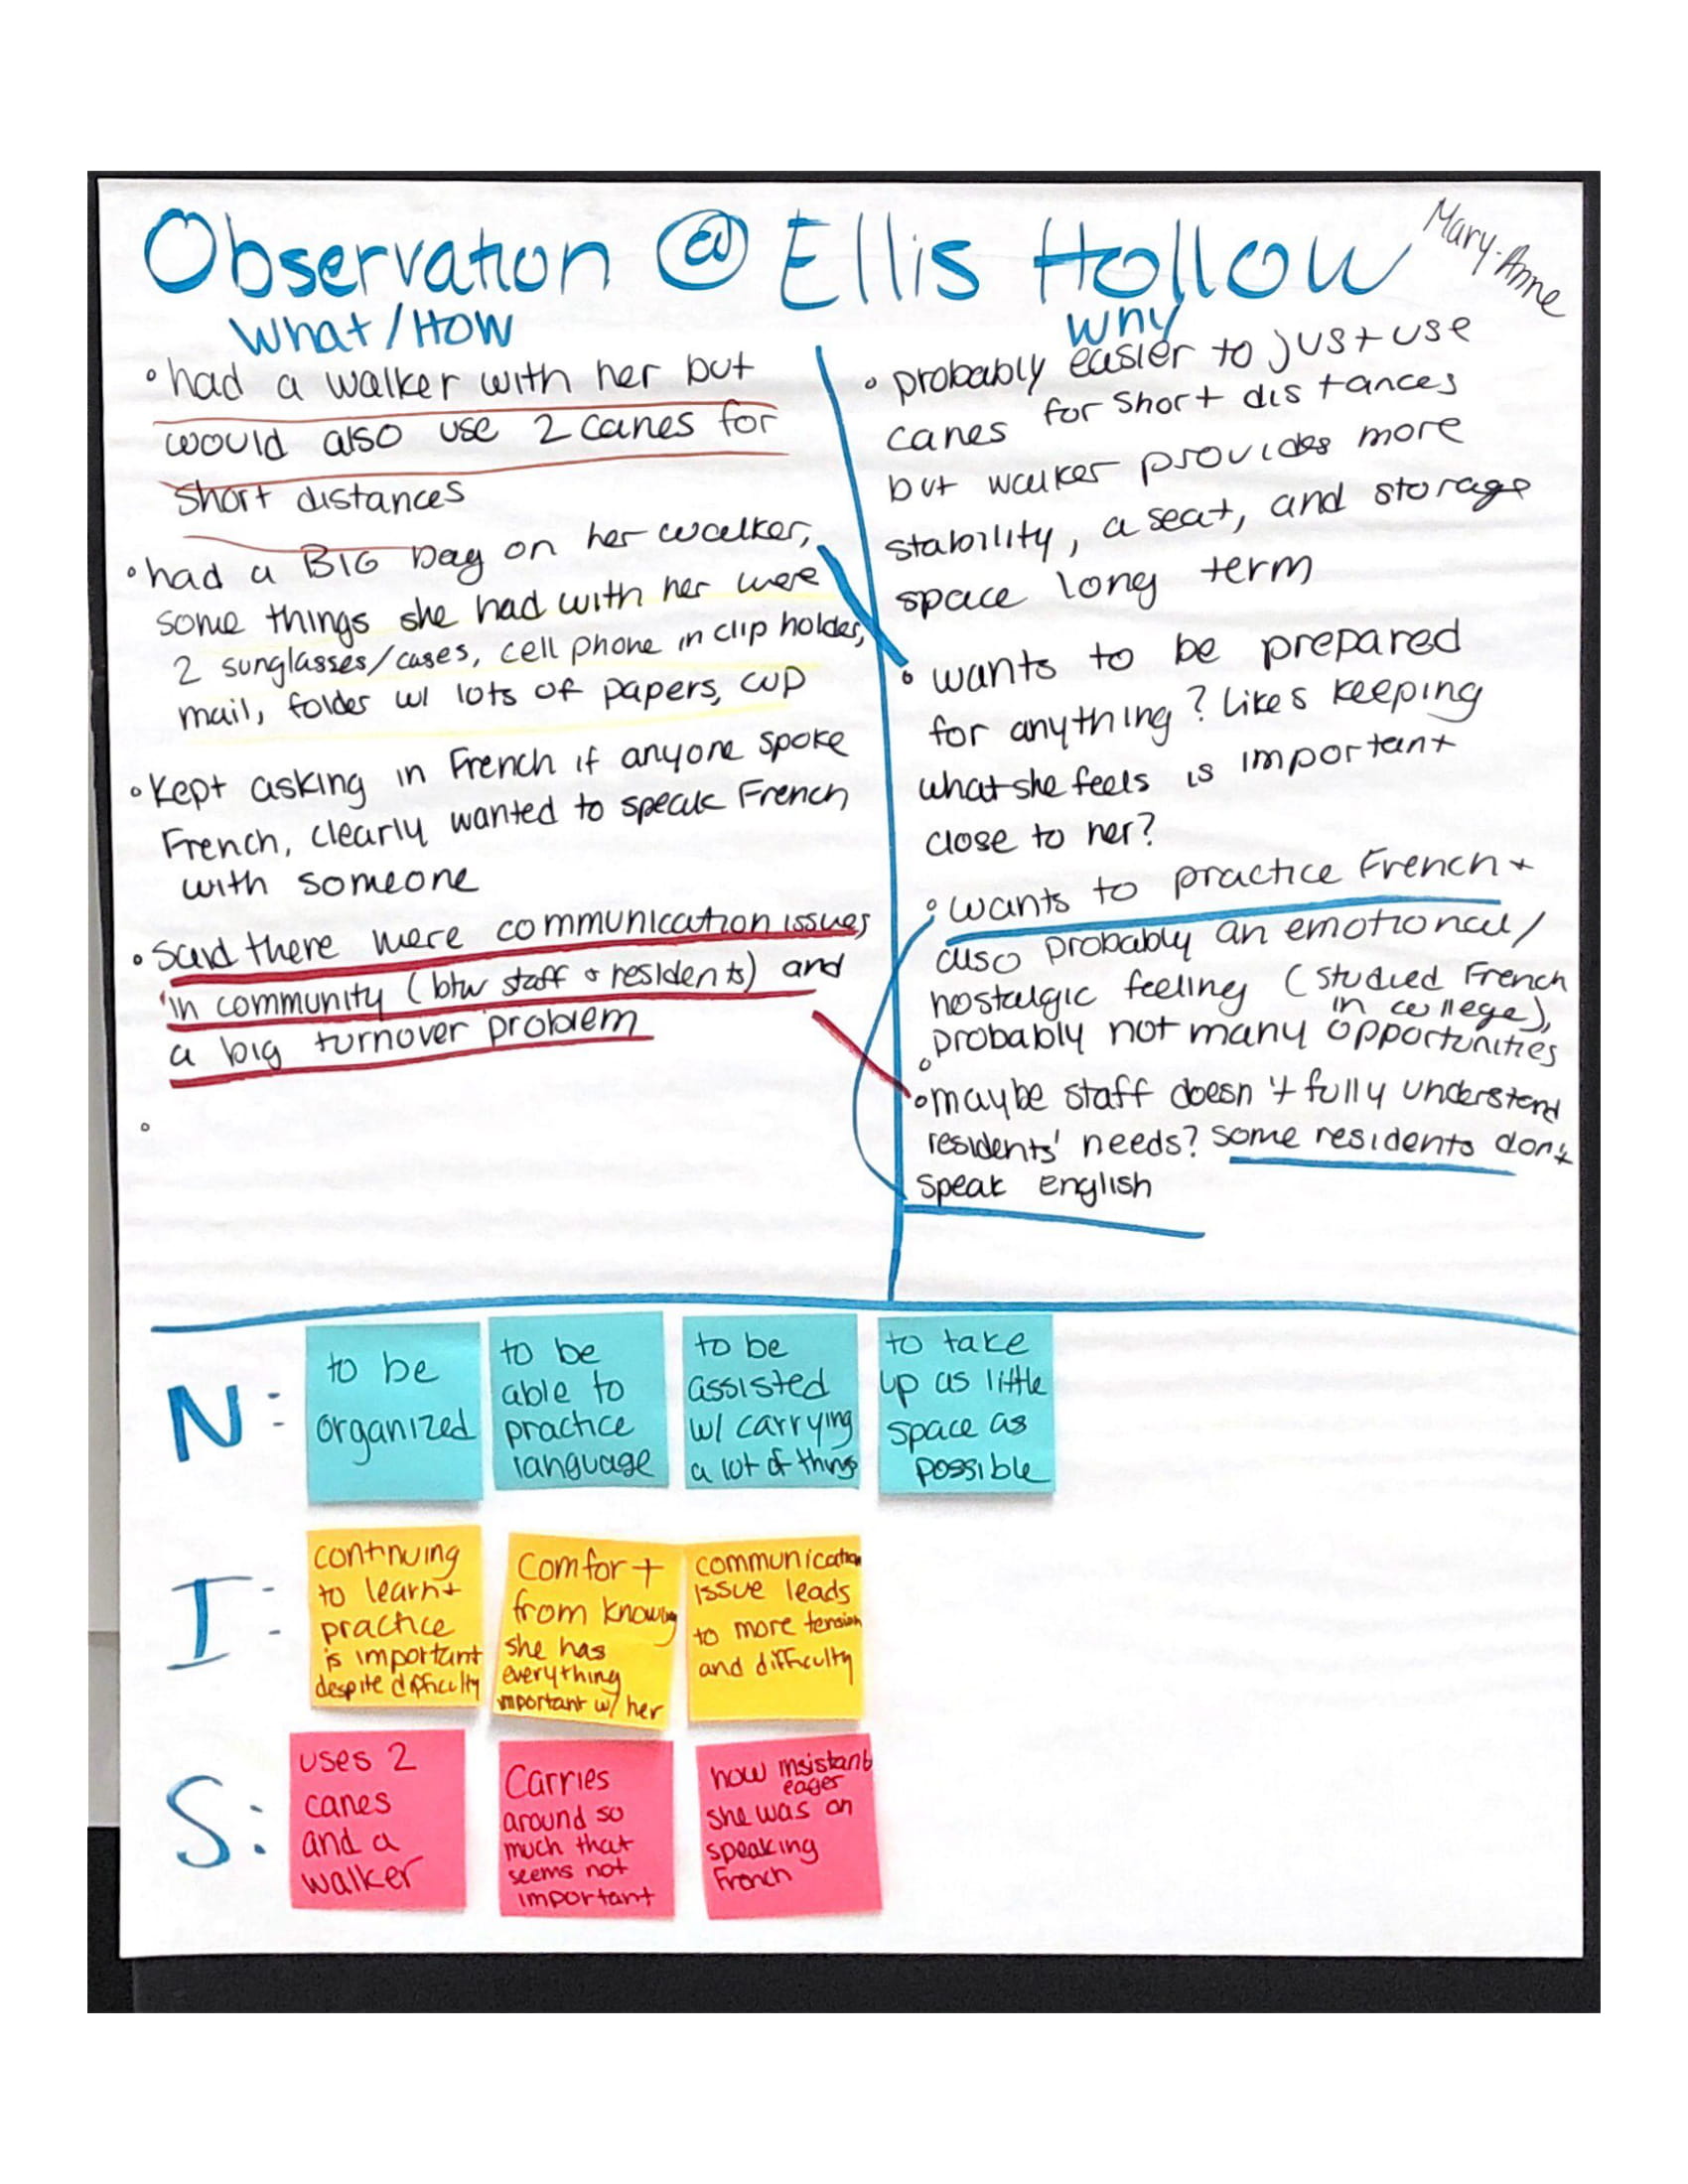 Observation @ Ellis Hollow
Mary-Anne
What/How
• had a walker with her but
would also use 2 canes for
short distances
• had a BIG bag on her walker,
some things she had with her were
2 sunglasses/cases, cell phone in clip holder,
mail, folder w/ lots of papers, cup
• Kept asking in French if anyone spoke
French, clearly wanted to speak French
with someone
• said there were communication issues
in community (btw staff & residents) and
a big turnover problem
Why
• probably easier to just use
canes for short distances
but walker provides more
stability, a seat, and storage
space long term
• wants to be prepared
for anything? Likes keeping
what she feels is important
close to her?
• wants to practice French +
also probably an emotional/
nostalgic feeling (studied French
in college),
probably not many opportunities
• maybe staff doesn't fully understand
residents' needs? Some residents don't
speak english
N:
to be
organized
to be
able to
practice
language
to be
assisted
w/ carrying
a lot of things
to take
up as little
space as
possible
I:
continuing
to learn +
practice
is important
despite difficulty
Comfort
from knowing
she has
everything
important w/ her
communication
issue leads
to more tension
and difficulty
S:
uses 2
canes
and a
walker
Carries
around so
much that
seems not
important
how insistant
eager
she was on
speaking
French